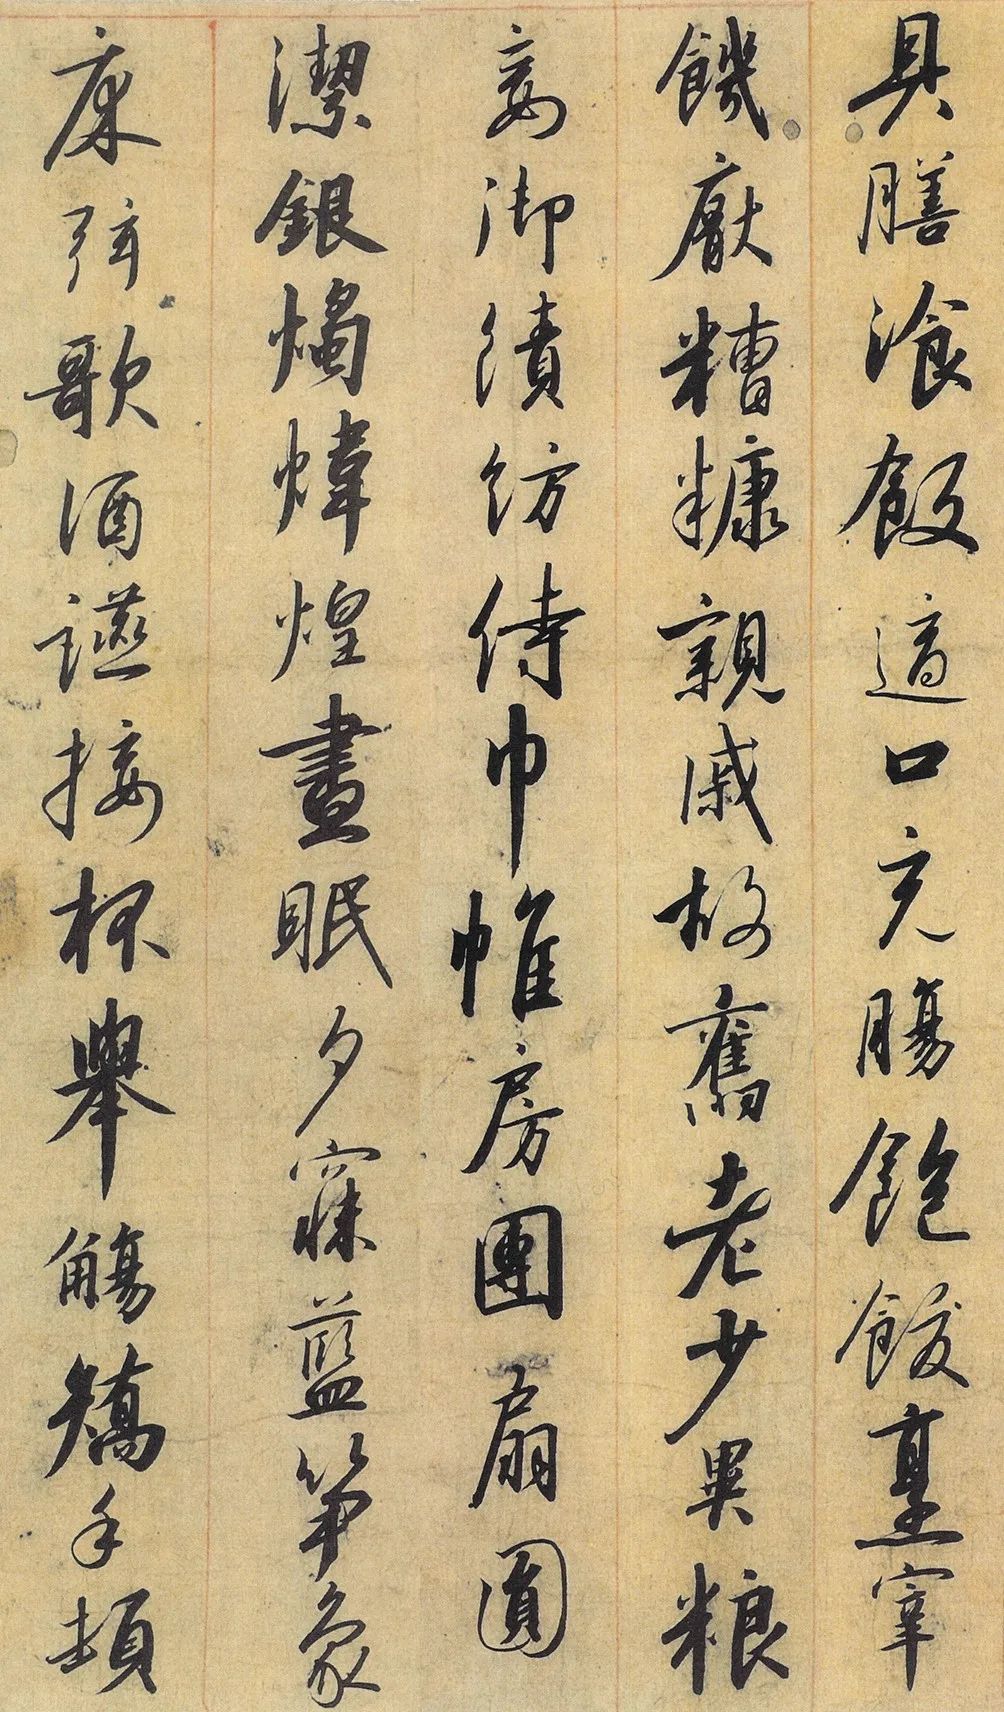 具膳湌飯適口充腸飽飫烹宰
饑厭糟糠親戚故舊老少異粮
妾御績紡侍巾帷房團扇圓
潔銀燭煒煌晝眠夕寐藍笋象
床弦歌酒讌接杯舉觴矯手頓